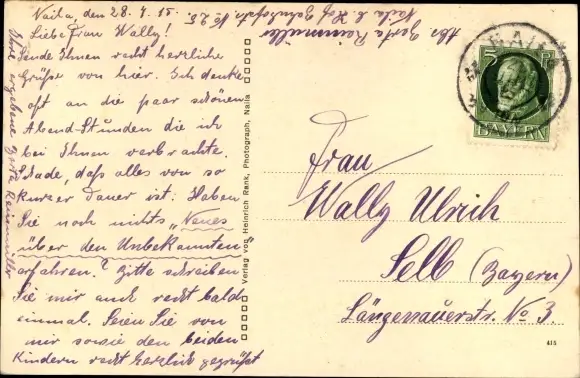 Naila, den 28.4.15.
Liebe Frau Wally!
Sende Ihnen recht herzliche
Grüße von hier. Ich denke
oft an die paar schönen
Abend-Stunden die ich
bei Ihnen verbrachte.
Schade, daß alles von so
kurzer Dauer ist. Haben
Sie noch nichts „Neues
über den Unbekannten"
erfahren? Bitte schreiben
Sie mir auch recht bald
einmal. Seien Sie von
mir sowie den beiden
Kindern recht herzlich gegrüßt
Ihre ergebene Gerta Reinmüller
Abs. Gerta Reinmüller
Naila b. Hof Bahnhofstr. No 225
Verlag von Heinrich Rank, Photograph, Naila
NAILA
5 PF
BAYERN
Frau
Wally Ulrich
Selb (Bayern)
Längenauerstr. No 3.
415